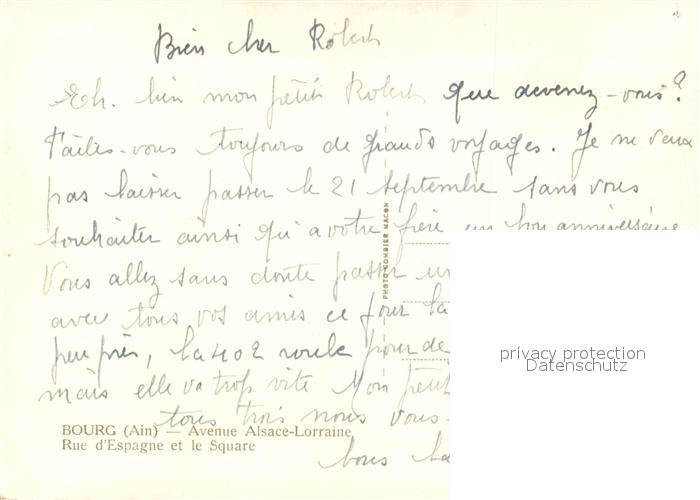 Bien cher Robert
Eh. bien mon petit Robert que devenez-vous?
Faites-vous toujours de grands voyages. Je ne veux
pas laisser passer le 21 septembre sans vous
souhaiter ainsi qu'a votre frère un bon anniversaire
Vous allez sans doute passer un
avec tous vos amis ce jour la
peu près, la 402 roule pour de
mais elle va trop vite Mon petit
tous trois nous vous
PHOTO COMBIER MACON
BOURG (Ain) — Avenue Alsace-Lorraine
Rue d'Espagne et le Square
privacy protection
Datenschutz